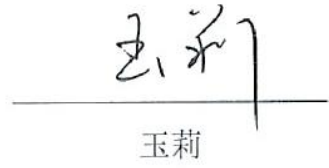 玉莉
玉莉